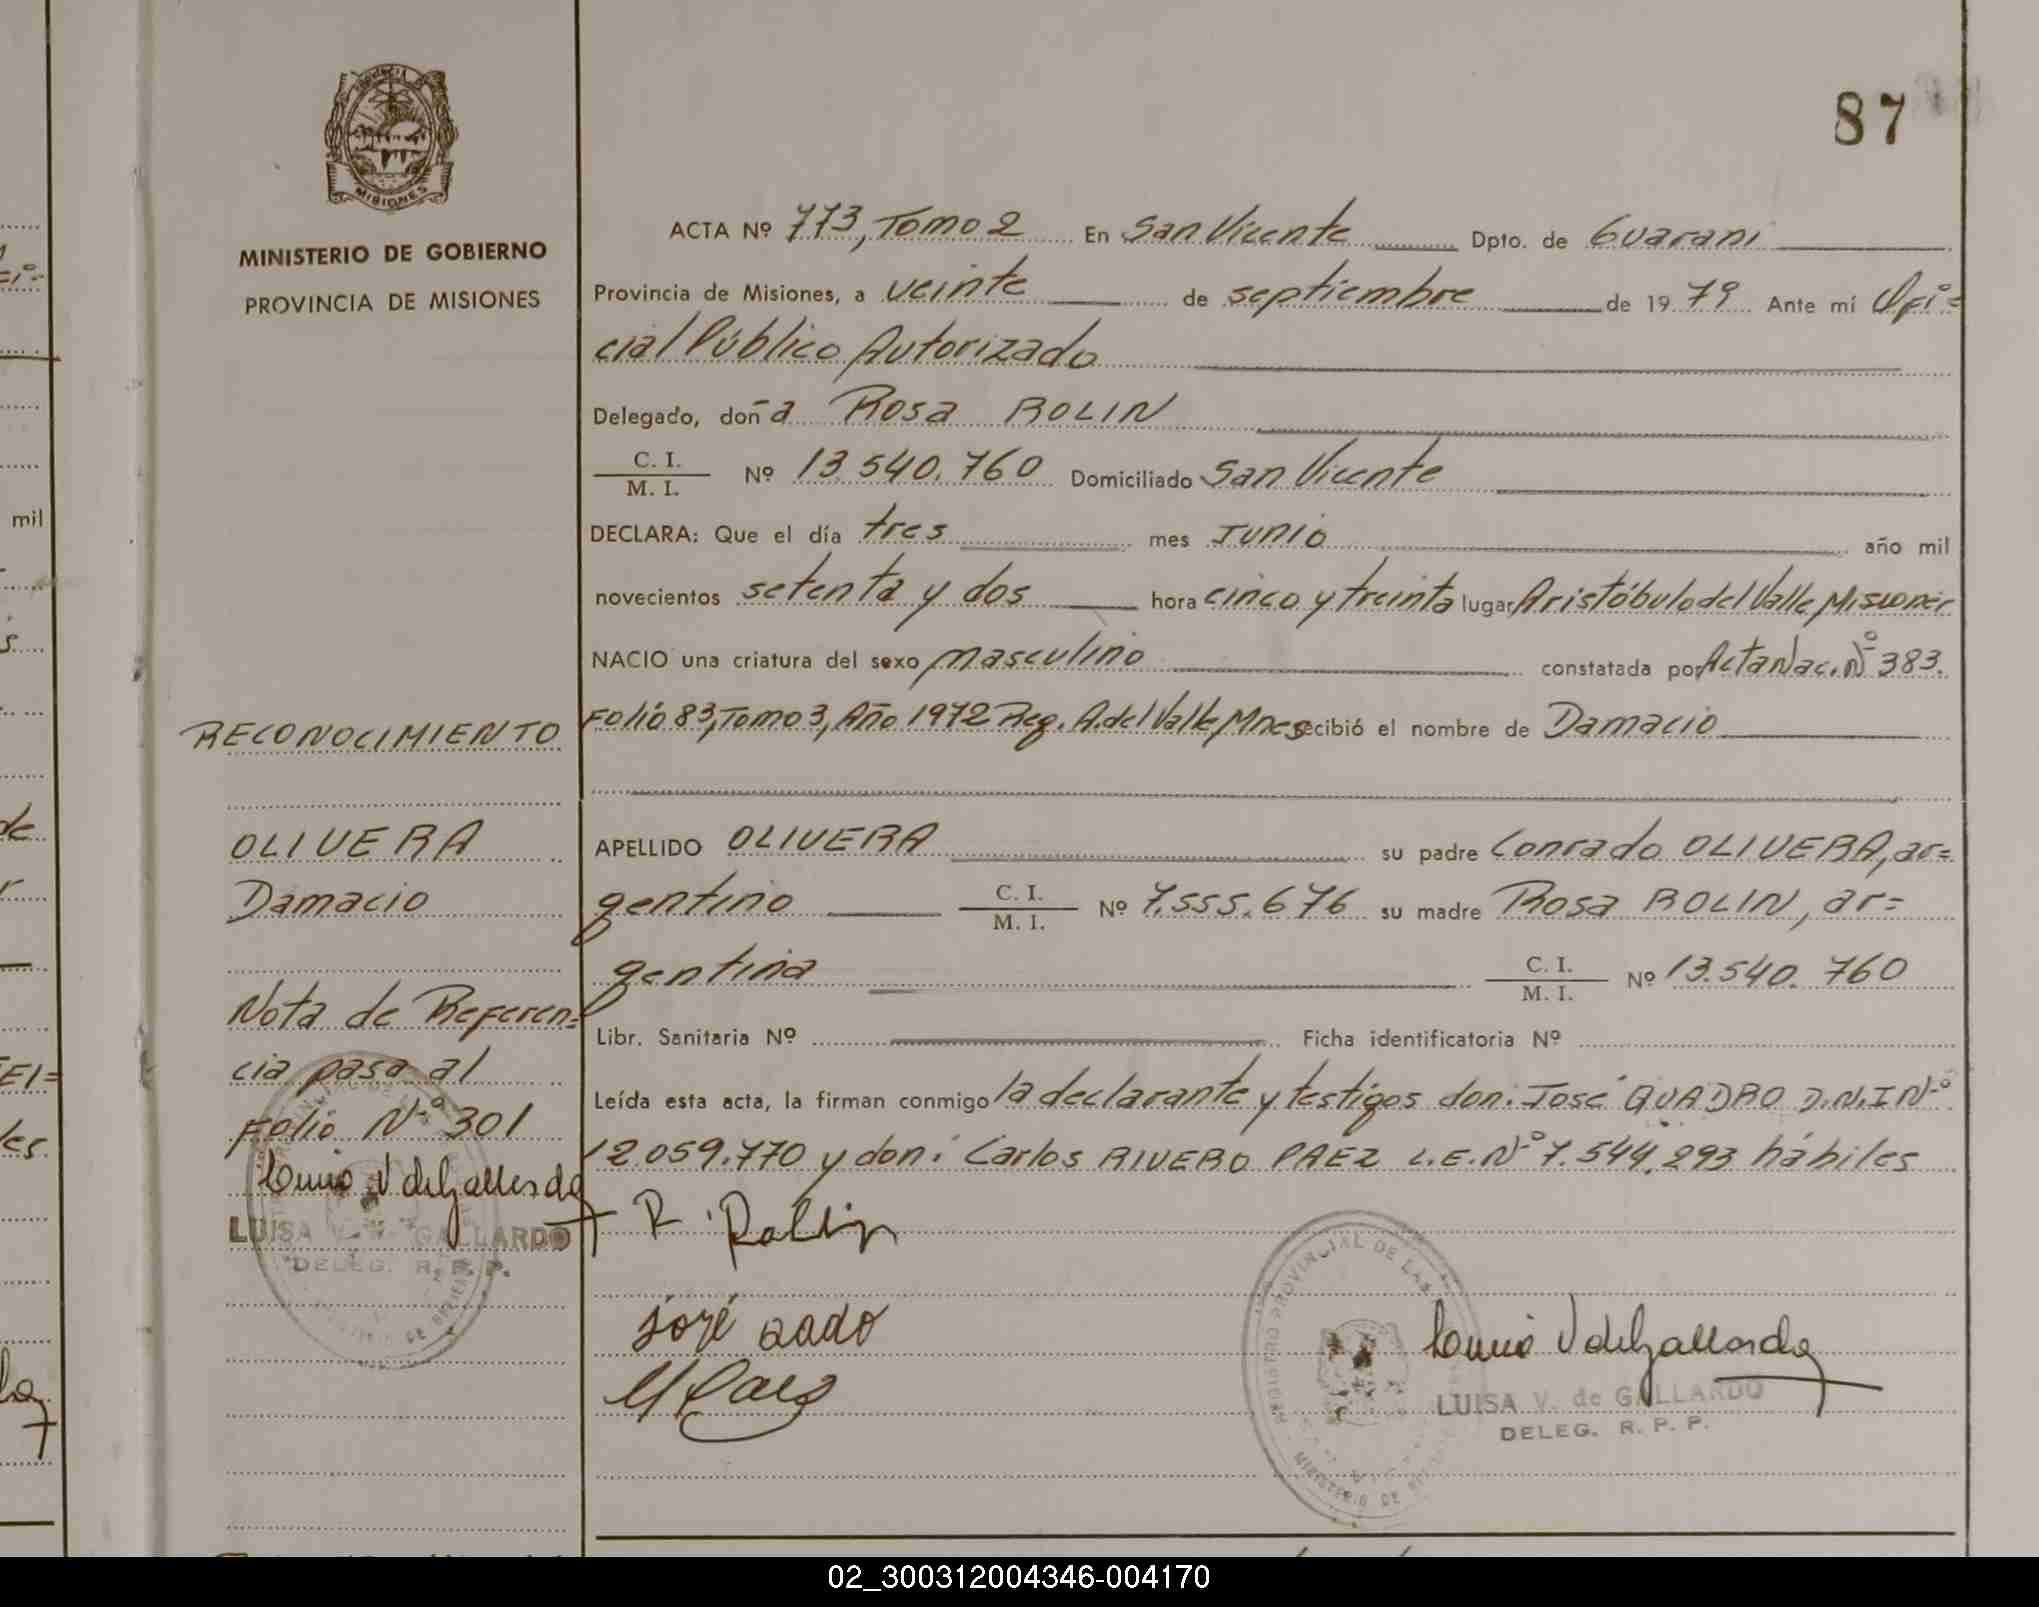 87
MISIONES
MINISTERIO DE GOBIERNO
PROVINCIA DE MISIONES
RECONOCIMIENTO
OLIVERA
Damacio
Nota de Referen=
cia pasa al
Folio Nº 301
LUISA V. de GALLARDO
DELEG. R. P. P.
ACTA Nº 773, Tomo 2 En San Vicente Dpto. de Guarani
Provincia de Misiones, a veinte de septiembre de 1979 Ante mí Ofi=
cial Público Autorizado
Delegado, doña Rosa ROLIN
C. I. / M. I. Nº 13.540.760 Domiciliado San Vicente
DECLARA: Que el día tres mes Junio año mil
novecientos setenta y dos hora cinco y treinta lugar Aristóbulo del Valle, Misiones
NACIO una criatura del sexo masculino constatada por Acta Nac. Nº 383.
Folio 83, Tomo 3, Año 1972 Reg. A. del Valle, Mnes recibió el nombre de Damacio
APELLIDO OLIVERA su padre Conrado OLIVERA, ar=
gentino C. I. / M. I. Nº 7.555.676 su madre Rosa ROLIN, ar=
gentina C. I. / M. I. Nº 13.540.760
Libr. Sanitaria Nº Ficha identificatoria Nº
Leída esta acta, la firman conmigo la declarante y testigos don: José QUADRO D.N.I Nº
12.059.770 y don: Carlos RIVERO PAEZ L.E. Nº 7.544.293 hábiles
R. Rollin
José
Paez
REGISTRO PROVINCIAL DE LAS
LUISA V. de GALLARDO
DELEG. R. P. P.
mil
02_300312004346-004170